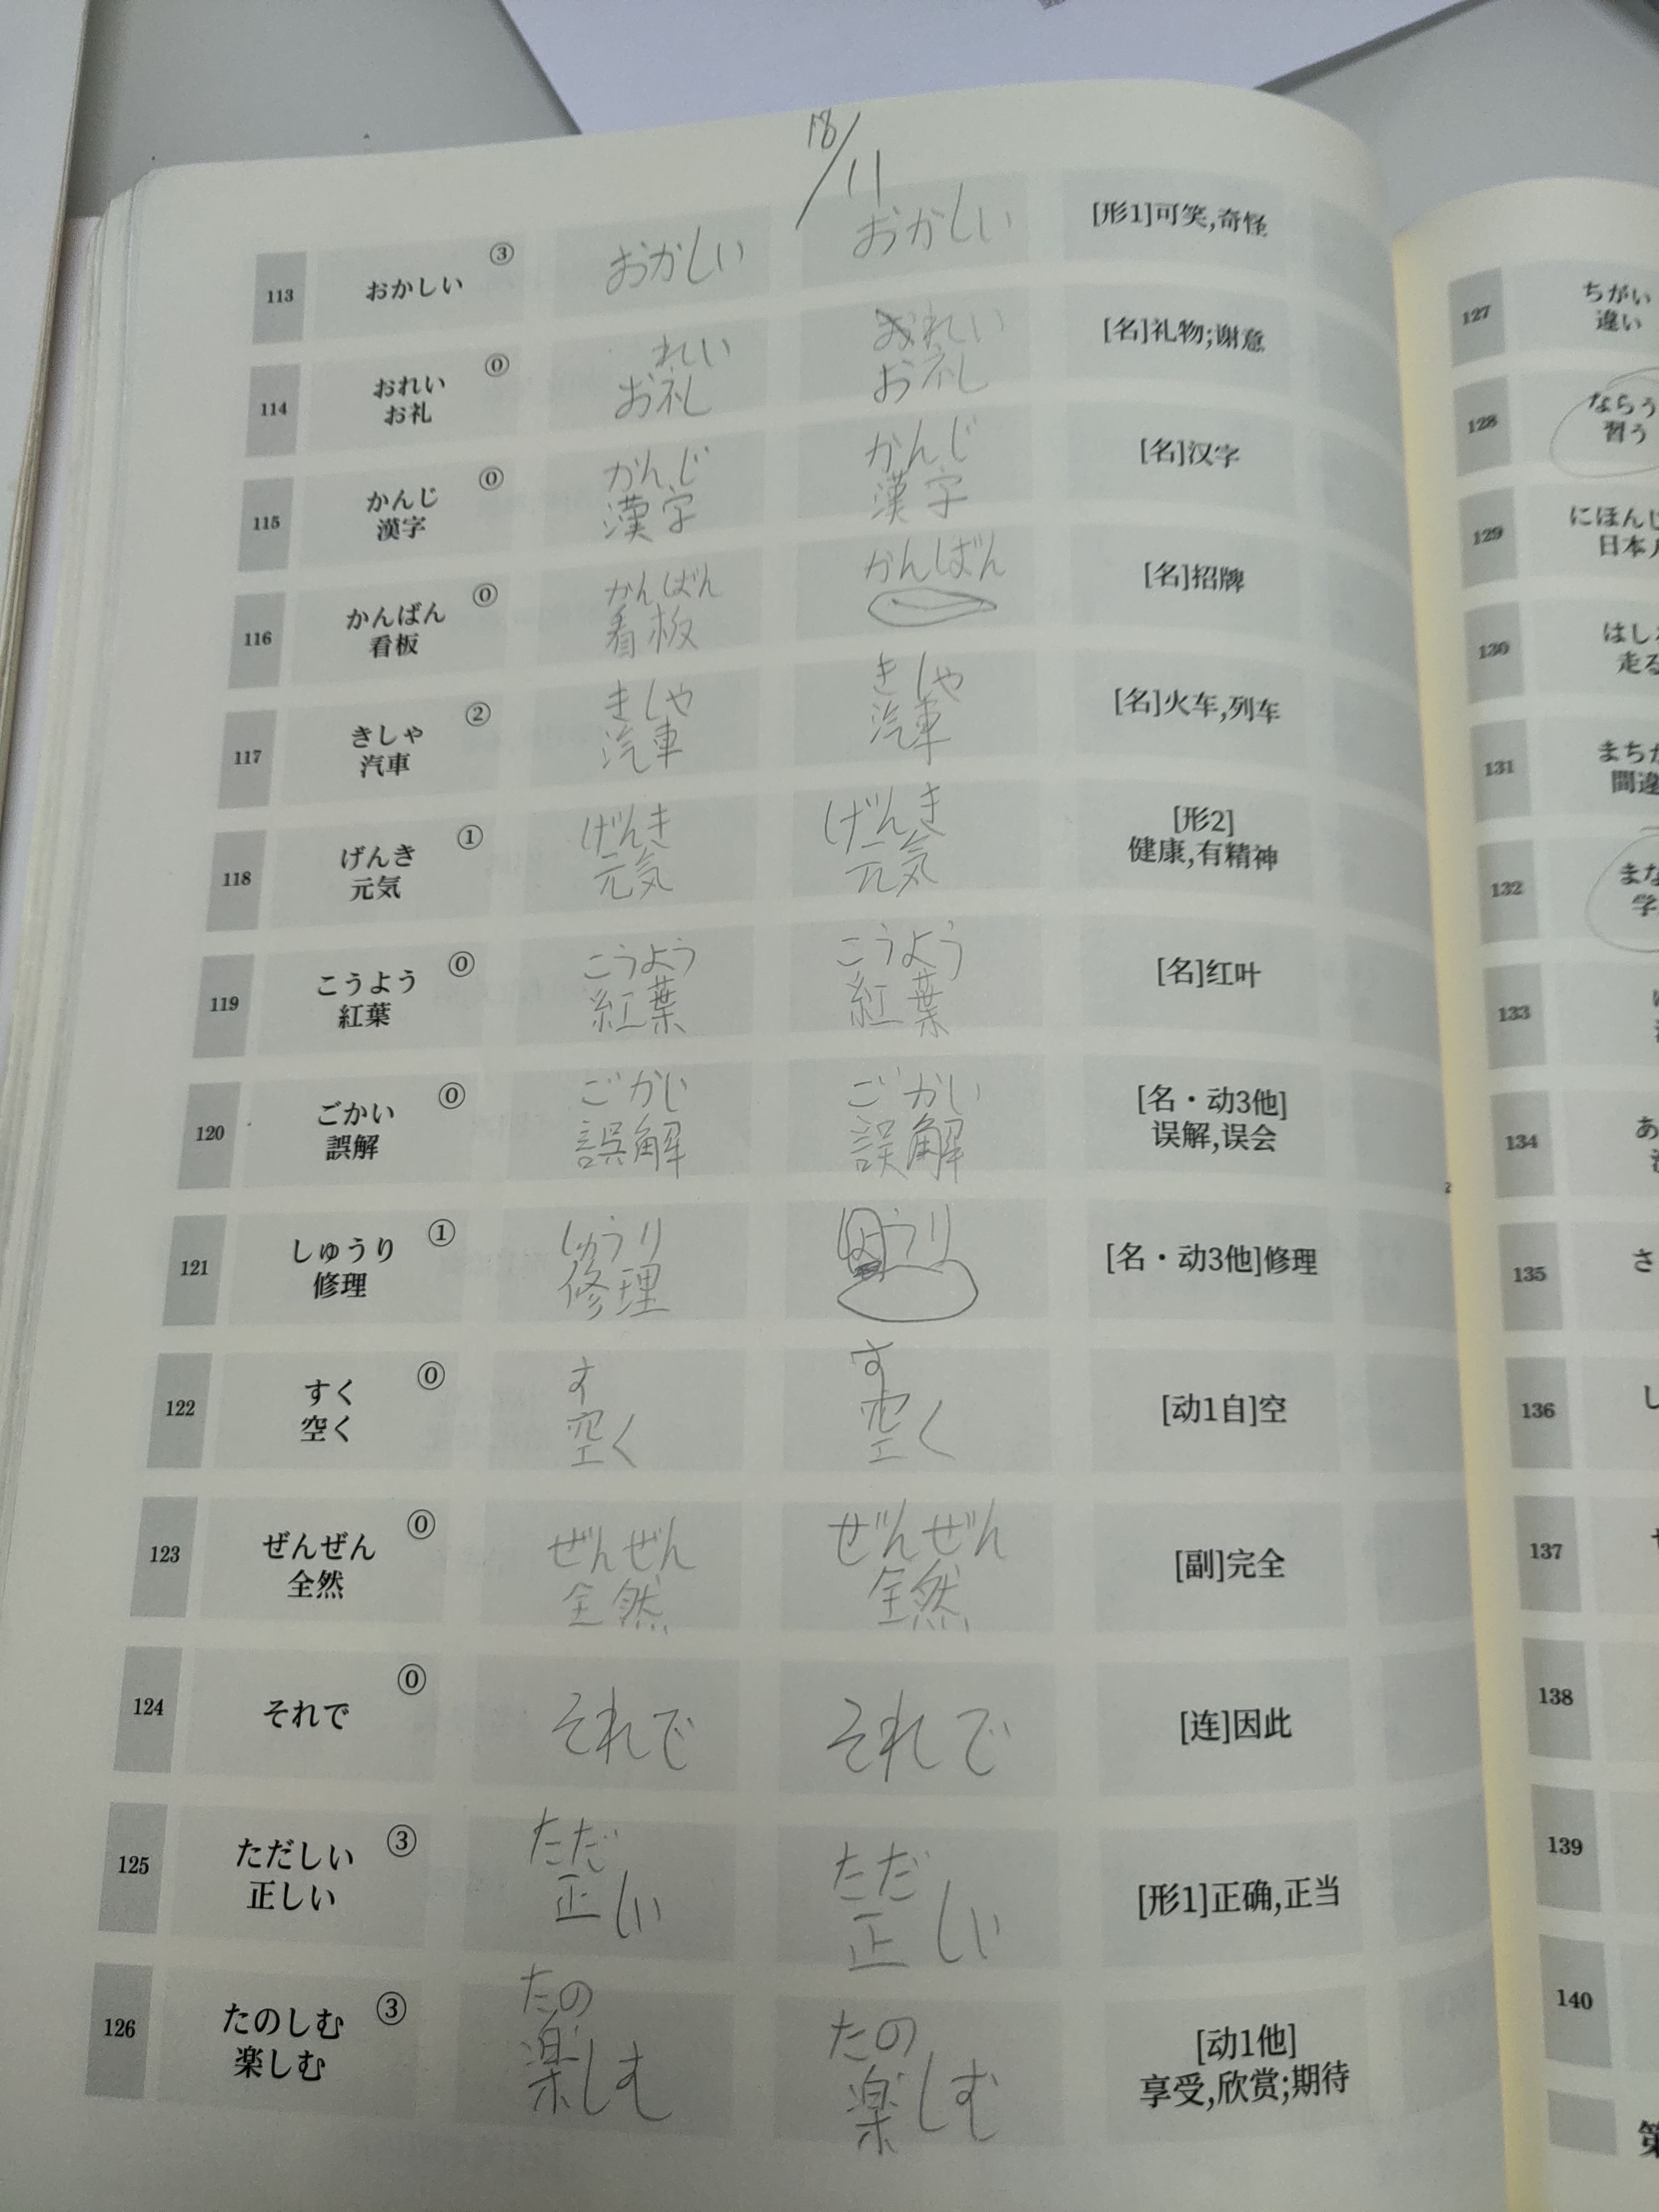 18/11
113 おかしい ③ おかしい おかしい [形1]可笑,奇怪
114 おれい ⓪ れい おれい [名]礼物;谢意
お礼 お礼 お礼
115 かんじ ⓪ かんじ かんじ [名]汉字
漢字 漢字 漢字
116 かんばん ⓪ かんばん かんばん [名]招牌
看板 看板
117 きしゃ ② きしゃ きしゃ [名]火车,列车
汽車 汽車 汽車
118 げんき ① げんき げんき [形2]
元気 元気 元気 健康,有精神
119 こうよう ⓪ こうよう こうよう [名]红叶
紅葉 紅葉 紅葉
120 ごかい ⓪ ごかい ごかい [名・动3他]
誤解 誤解 誤解 误解,误会
121 しゅうり ① しゅうり うり [名・动3他]修理
修理 修理
122 すく ⓪ す す [动1自]空
空く 空く 空く
123 ぜんぜん ⓪ ぜんぜん ぜんぜん [副]完全
全然 全然 全然
124 それで ⓪ それで それで [连]因此
125 ただしい ③ ただ ただ [形1]正确,正当
正しい 正しい 正しい
126 たのしむ ③ たの たの [动1他]
楽しむ 楽しむ 楽しむ 享受,欣赏;期待
127 ちがい
違い
128 ならう
習う
129 にほんじ
日本
130 はし
走る
131 まちが
間違
132 まな
学
133
134 あ
135 さ
136 し
137
138
139
140
第